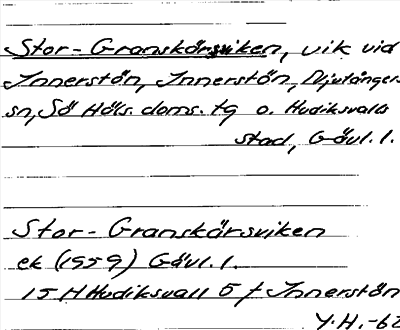 Stor-Granskärsviken, vik vid
Innerstön, Innerstön, Njutånger
sn, Sö Häls. doms. tg o. Hudiksvalls
stad, Gävl. l.
Stor-Granskärsviken
ek (1959) Gävl. l.
15 H Hudiksvall 5 f Innerstön
Y.H. -62